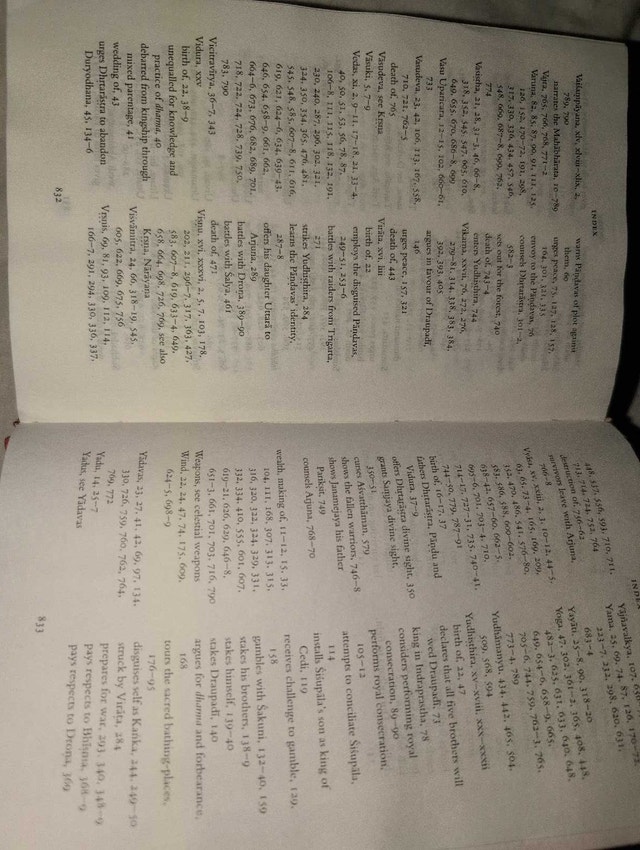 INDEX
Vaiśampāyana, xlv, xlviii–xlix, 2,
789, 790
narrates the Mahābhārata, 10–789
Vajra, 765, 766, 768, 771–2
Varuṇa, 82, 85, 87, 90, 91, 111, 125,
126, 150, 170–72, 191, 298,
317, 330, 336, 434, 457, 546,
548, 609, 687–8, 690, 762,
774
Vasiṣṭha, 21, 28, 31–3, 46, 66–8,
318, 352, 545, 547, 605, 610,
649, 655, 670, 686–8, 699
Vasu Uparicara, 12–15, 102, 660–61,
733
Vasudeva, 23, 42, 106, 113, 167, 538,
710, 721, 762–3
death of, 765
Vāsudeva, see Kṛṣṇa
Vāsuki, 5, 7–9
Vedas, xi, 2, 9–11, 17–18, 21, 33–4,
40, 50, 51, 53, 56, 78, 87,
106–8, 111, 115, 118, 152, 191,
230, 240, 287, 296, 302, 321,
324, 350, 354, 365, 476, 481,
545, 548, 585, 607–8, 611, 616,
619, 621, 624–6, 634, 639–43,
646, 654, 658–9, 661, 662,
664–6, 673, 676, 682, 689, 701,
718, 722, 724, 728, 739, 750,
783, 790
Vicitravīrya, 36–7, 343
Vidura, xxv
birth of, 22, 38–9
unequalled for knowledge and
practice of dharma, 40
debarred from kingship through
mixed parentage, 41
wedding of, 43
urges Dhṛtarāṣṭra to abandon
Duryodhana, 45, 134–6
warns Pāṇḍavas of plot against
them, 60
urges peace, 75, 127, 128, 157,
164, 301, 321, 331
envoy to the Pāṇḍavas, 76
counsels Dhṛtarāṣṭra, 301–2,
582–3
sees out for the forest, 740
death of, 743–4
enters Yudhiṣṭhira, 744
Vikarṇa, xxvii, 70, 272, 276,
279–81, 314, 338, 383, 384,
392, 393, 405
argues in favour of Draupadī,
146
urges peace, 157, 321
death of, 443
Virāṭa, xvi, liii
birth of, 22
employs the disguised Pāṇḍavas,
249–51, 253–6
battles with raiders from Trigarta,
271
strikes Yudhiṣṭhira, 284
learns the Pāṇḍavas' identity,
287–8
offers his daughter Uttarā to
Arjuna, 286
battles with Droṇa, 389–90
battles with Śalya, 461
death of, 471
Viṣṇu, xvi, xxxvi, 2, 5, 7, 103, 178,
202, 211, 296–7, 317, 363, 427,
583, 607–8, 619, 633–4, 649,
658, 664, 698, 726, 769, see also
Kṛṣṇa, Nārāyaṇa
Viśvāmitra, 24, 66, 318–19, 545,
605, 622, 669, 675, 756
Vṛṣṇis, 69, 81, 93, 109, 112, 114,
166–7, 291, 294, 330, 336, 337,
832
348, 357, 436, 592, 710, 711,
713, 714, 721, 752, 764
destruction of, 756–62
survivors leave with Arjuna,
766–8
Vyāsa, xv, xviii, 2, 3, 10–12, 44–5,
63, 65, 73–4, 165, 169, 209,
352, 470, 472, 541, 576–80,
583, 586, 588, 600–602,
638–42, 657–60, 662–5,
695–6, 701, 703–4, 710,
714–17, 727–31, 735, 740–41,
744–50, 779, 782–91
birth of, 16–17, 37
fathers Dhṛtarāṣṭra, Pāṇḍu and
Vidura, 37–9
offers Dhṛtarāṣṭra divine sight, 350
grants Saṃjaya divine sight,
350–51
curses Aśvatthāman, 579
shows the fallen warriors, 746–8
shows Janamejaya his father
Parikṣit, 749
counsels Arjuna, 768–70

wealth, making of, 11–12, 15, 33,
104, 111, 168, 307, 313, 315,
316, 320, 322, 324, 329, 331,
332, 334, 410, 555, 601, 607,
619–21, 626, 629, 646–8,
651–3, 661, 701, 703, 716, 790
Weapons, see celestial weapons
Wind, 22, 24, 47, 74, 175, 609,
624–5, 698–9

Yādavas, 23, 27, 41, 42, 69, 97, 134,
330, 726, 759, 760, 762, 764,
769, 772
Yadu, 14, 25–7
Yadus, see Yādavas
INDEX
Yājñavalkya, 107,
Yama, 25, 69, 74, 87, 126, 170–72,
225–7, 232, 298, 620, 631,
682–4
Yayāti, 25–8, 90, 318–20
Yoga, 47, 302, 361–2, 365, 408, 448,
482–3, 625, 631, 633, 640, 648,
649, 654–6, 658–9, 665,
705–6, 744, 759, 762–3, 765,
773–4, 789
Yudhāmanyu, 434, 442, 465, 504,
509, 568, 594
Yudhiṣṭhira, xv–xviii, xxx–xxxii
birth of, 22, 47
declares that all five brothers will
wed Draupadī, 73
king in Indraprastha, 78
considers performing royal
consecration, 89–90
performs royal consecration,
105–12
attempts to conciliate Śiśupāla,
114
installs Śiśupāla's son as king of
Cedi, 119
receives challenge to gamble, 129,
158
gambles with Śakuni, 132–40, 159
stakes his brothers, 138–9
stakes himself, 139–40
stakes Draupadī, 140
argues for dharma and forbearance,
168
tours the sacred bathing-places,
176–95
disguises self as Kaṅka, 244, 249–50
struck by Virāṭa, 284
prepares for war, 293, 340, 348–9
pays respects to Bhīṣma, 368–9
pays respects to Droṇa, 369
833